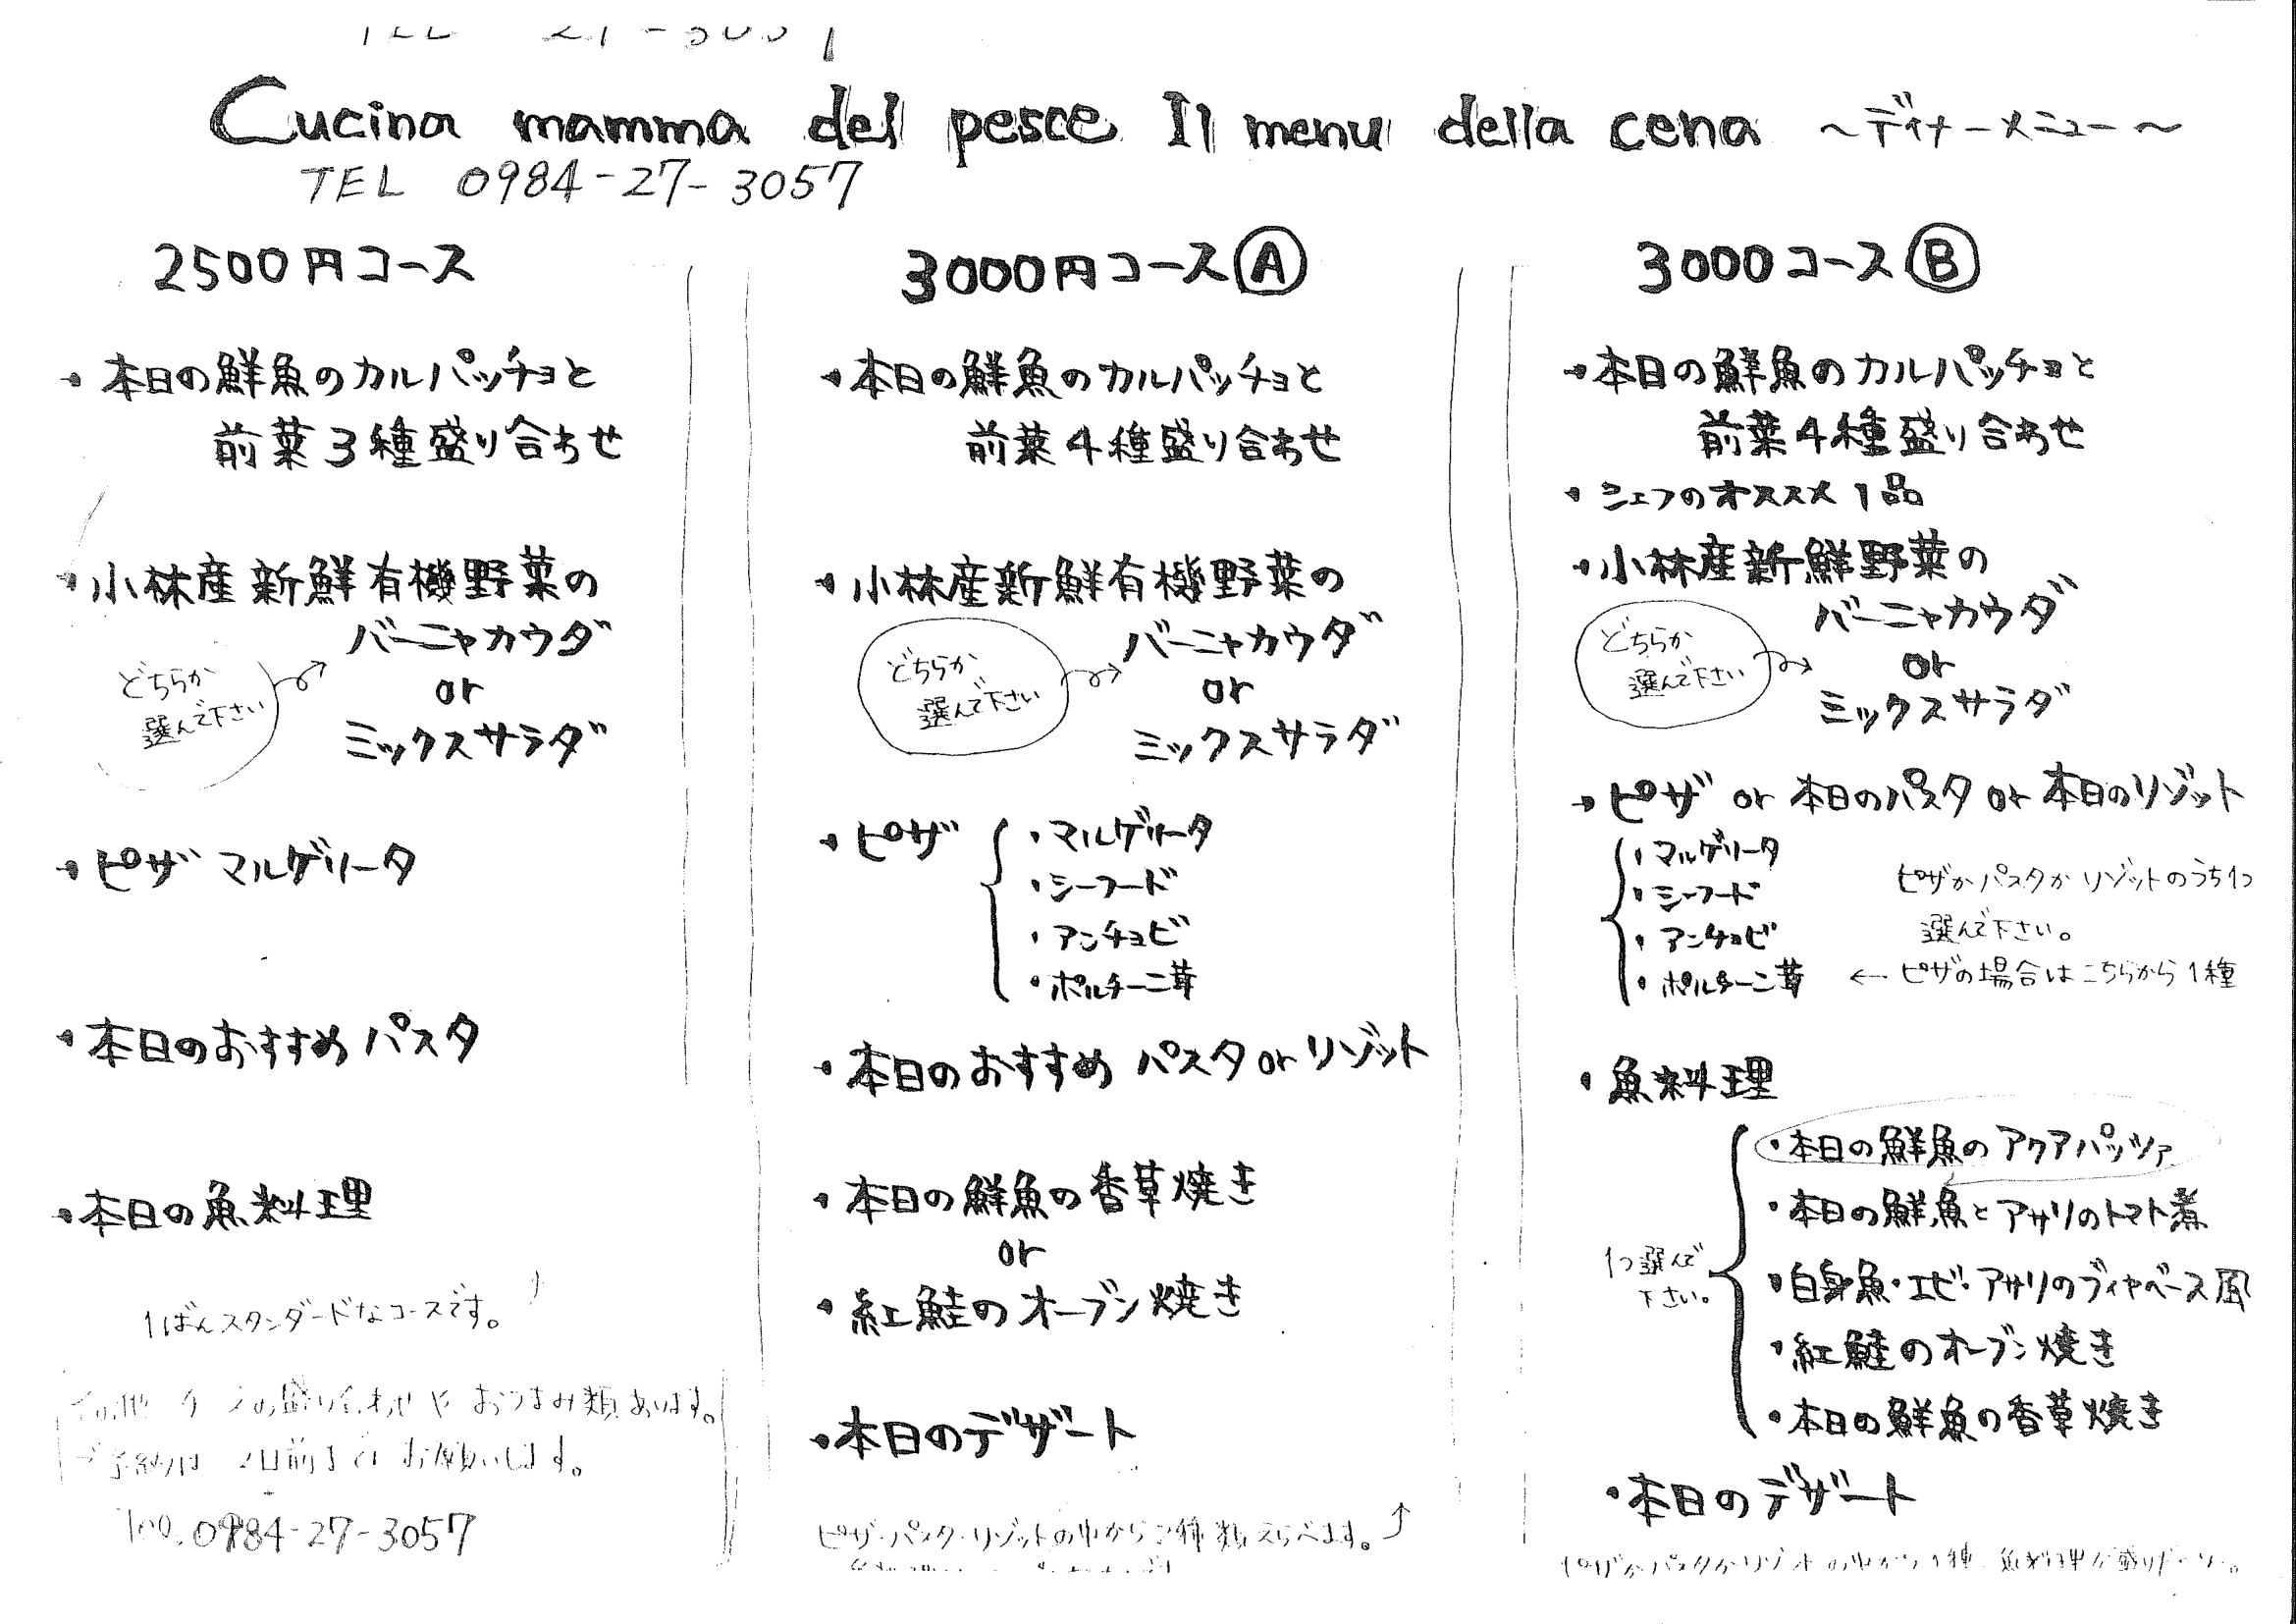 Cucina mamma del pesce Il menu della cena ～ディナーメニュー～
TEL 0984-27-3057
2500円コース
・本日の鮮魚のカルパッチョと
前菜3種盛り合わせ
・小林産新鮮有機野菜の
バーニャカウダ
or
ミックスサラダ
どちらか
選んで下さい
・ピザ マルゲリータ
・本日のおすすめパスタ
・本日の魚料理
1ばんスタンダードなコースです。
の盛り合わせや おつまみ類あります。
ご予約は 2日前までに お願いします。
0984-27-3057
3000円コースⒶ
・本日の鮮魚のカルパッチョと
前菜4種盛り合わせ
・小林産新鮮有機野菜の
バーニャカウダ
or
ミックスサラダ
どちらか
選んで下さい
・ピザ
・マルゲリータ
・シーフード
・アンチョビ
・ポルチーニ茸
・本日のおすすめ パスタ or リゾット
・本日の鮮魚の香草焼き
or
・紅鮭のオーブン焼き
・本日のデザート
ピザ・パスタ・リゾットの中から2種類えらべます。
3000コースⒷ
・本日の鮮魚のカルパッチョと
前菜4種盛り合わせ
・シェフのオススメ1品
・小林産新鮮野菜の
バーニャカウダ
or
ミックスサラダ
どちらか
選んで下さい
・ピザ or 本日のパスタ or 本日のリゾット
・マルゲリータ
・シーフード
・アンチョビ
・ポルチーニ茸
ピザかパスタかリゾットのうち1つ
選んで下さい。
← ピザの場合はこちらから1種
・魚料理
1つ選んで
下さい。
・本日の鮮魚のアクアパッツァ
・本日の鮮魚とアサリのトマト煮
・白身魚・エビ・アサリのブイヤベース風
・紅鮭のオーブン焼き
・本日の鮮魚の香草焼き
・本日のデザート
ピザかパスタかリゾットの中から1種